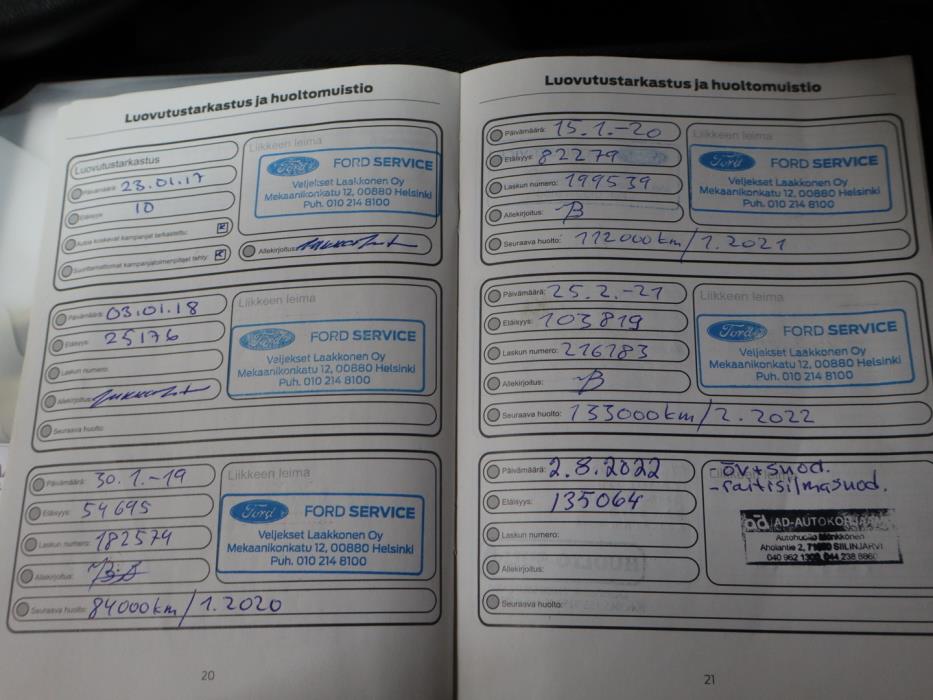 Luovutustarkastus ja huoltomuistio
Luovutustarkastus
Päivämäärä: 23.01.17
Eläisyys: 10
Autoa koskevat kampanjat tarkastettu:
Suorittamattomat kampanjatoimenpiteet tehty:
Liikkeen leima
Ford FORD SERVICE
Veljekset Laakkonen Oy
Mekaanikonkatu 12, 00880 Helsinki
Puh. 010 214 8100
Allekirjoitus:
Päivämäärä: 03.01.18
Eläisyys: 25176
Laskun numero:
Allekirjoitus:
Seuraava huolto:
Liikkeen leima
Ford FORD SERVICE
Veljekset Laakkonen Oy
Mekaanikonkatu 12, 00880 Helsinki
Puh. 010 214 8100
Päivämäärä: 30.1.-19
Eläisyys: 54695
Laskun numero: 182574
Allekirjoitus:
Seuraava huolto: 84000km/1.2020
Liikkeen leima
Ford FORD SERVICE
Veljekset Laakkonen Oy
Mekaanikonkatu 12, 00880 Helsinki
Puh. 010 214 8100
20
Luovutustarkastus ja huoltomuistio
Päivämäärä: 15.1.-20
Eläisyys: 82279
Laskun numero: 199539
Allekirjoitus:
Seuraava huolto: 112000km/1.2021
Liikkeen leima
Ford FORD SERVICE
Veljekset Laakkonen Oy
Mekaanikonkatu 12, 00880 Helsinki
Puh. 010 214 8100
Päivämäärä: 25.2.-21
Eläisyys: 103819
Laskun numero: 216183
Allekirjoitus:
Seuraava huolto: 133000km/2.2022
Liikkeen leima
Ford FORD SERVICE
Veljekset Laakkonen Oy
Mekaanikonkatu 12, 00880 Helsinki
Puh. 010 214 8100
Päivämäärä: 2.8.2022
Eläisyys: 135064
Laskun numero:
Allekirjoitus:
Seuraava huolto:
- öv+suod.
- raitisilmasuod.
ad AD-AUTOKORJAAMO
Autohuolto
Aholantie 2, SIILINJÄRVI
040 962 238 8860
21